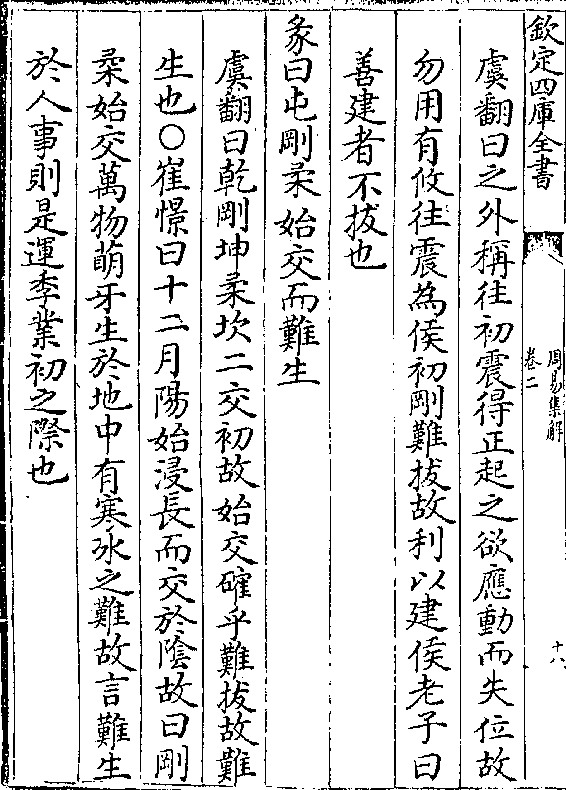 欽定四庫全書
周易集解
卷二
十八
虞翻曰之外稱往初震得正起之欲應動而失位故
勿用有攸往震為侯初剛難拔故利以建侯老子曰
善建者不拔也
彖曰屯剛柔始交而難生
虞翻曰乾剛坤柔坎二交初故始交確乎難拔故難
生也○崔憬曰十二月陽始浸長而交於陰故曰剛
柔始交萬物萌牙生於地中有寒氷之難故言難生
於人事則是運季業初之際也